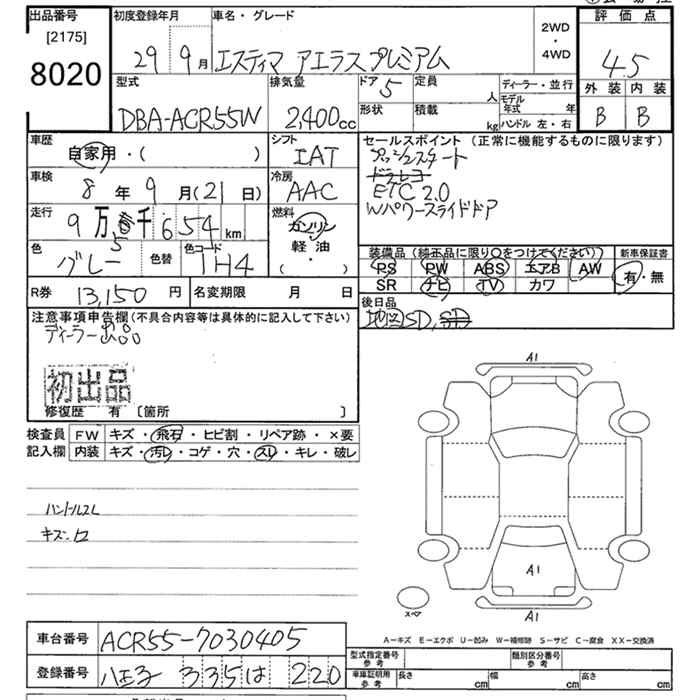 出品番号
[2175]
8020
初度登録年月
29年9月
車名・グレード
エスティマ アエラスプレミアム
2WD
・
4WD
評価点
4.5
外装 内装
B B
型式
DBA-ACR55W
排気量
2,400cc
ドア 5
定員 人
形状
積載 kg
ディーラー・並行
モデル年式 年
ハンドル 左・右
車歴
自家用・( )
シフト
IAT
車検
8年9月(21日)
冷房
AAC
走行
9万5千654km
燃料
ガソリン
軽油
・( )
色
グレー
色替
色コード
1H4
セールスポイント(正常に機能するものに限ります)
プッシュスタート
ドラレコ
ETC 2.0
Wパワースライドドア
装備品(純正品に限り○をつけてください)
PS PW ABS エアB AW
SR ナビ TV カワ
新車保証書
有・無
R券 13,150円
名変期限 月 日
後日品
地図SD, SD
注意事項申告欄(不具合内容等は具体的に記入して下さい)
ディーラー出品
初出品
修復歴 有 [箇所 ]
検査員記入欄
FW キズ・飛石・ヒビ割・リペア跡・×要
内装 キズ・汚レ・コゲ・穴・スレ・キレ・破レ
ハンドルスレ
キズ・凹
A1
A1
A1
スペア
A-キズ E-エクボ U-凹み W-補修跡 S-サビ C-腐食 XX-交換済
車台番号 ACR55-7030405
登録番号 八王子 335 は 220
型式指定番号
参考
類別区分番号
参考
車庫証明用
参考
長さ cm
幅 cm
高さ cm